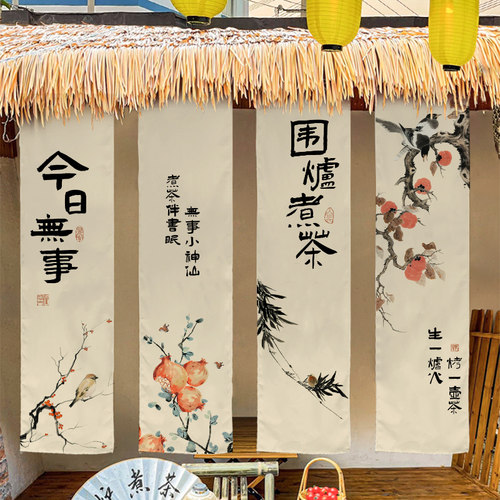 今日無事
煮茶伴書眠
無事小神仙
围爐煮茶
生一爐火
烤一壺茶
煮茶